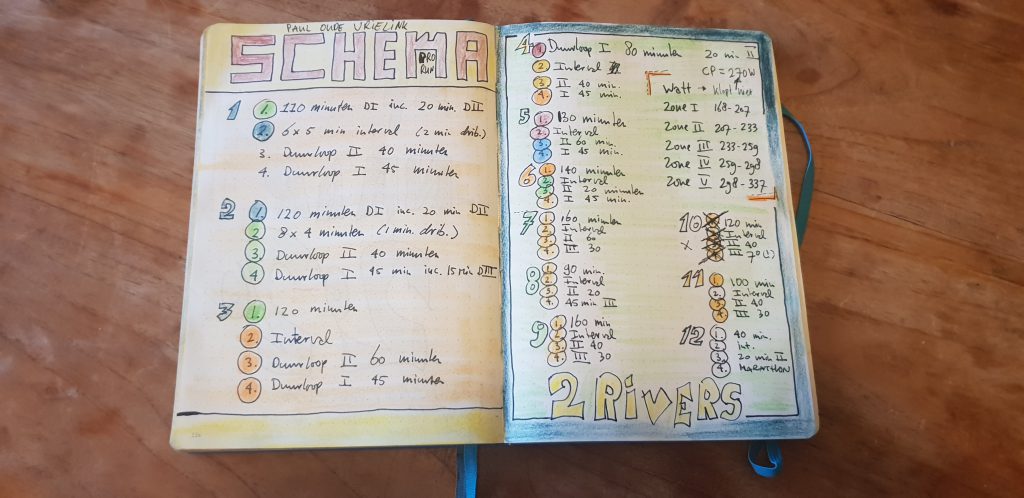 PAUL OUDE VRIELINK
SCHEMA
PRO
RUN
1
1. 120 minuten DI inc. 20 min. DII
2. 6x5 min interval (2 min drib.)
3. Duurloop II 40 minuten
4. Duurloop I 45 minuten
2
1. 120 minuten DI inc. 20 min DII
2 8x4 minuten (1 min. drib.)
3 Duurloop II 40 minuten
4 Duurloop I 45 min inc. 15 min DIII
3
1. 120 minuten
2. Interval
3. Duurloop II 60 minuten
4. Duurloop I 45 minuten
4
1. Duurloop I 80 minuten 20 min II
2 Interval
3 II 40 min.
4. I 45 min.
CP = 270W
Watt → klopt niet
Zone I 168-207
Zone II 207-233
Zone III 233-259
Zone IV 259-298
Zone V 298-337
5
1. 130 minuten
2. Interval
3. II 60 min.
4. I 45 min.
6
1. 140 minuten
2. Interval
3 II 20 minuten
4. I 45 min.
7
1. 160 minuten
2. Interval
3. II 60
4. III 30
8
1. 90 min.
2 Interval
3. II 20
4. 45 min III
9
1. 160 min
2. Interval
3. II 40
4. III 30
10
x
120 min
Interval
II 40
70 (!)
11
1. 100 min
2. Interval
3. II 40
4. III 30
12
1. 40 min.
2. int.
3. 20 min II
4. MARATHON
2 RIVERS